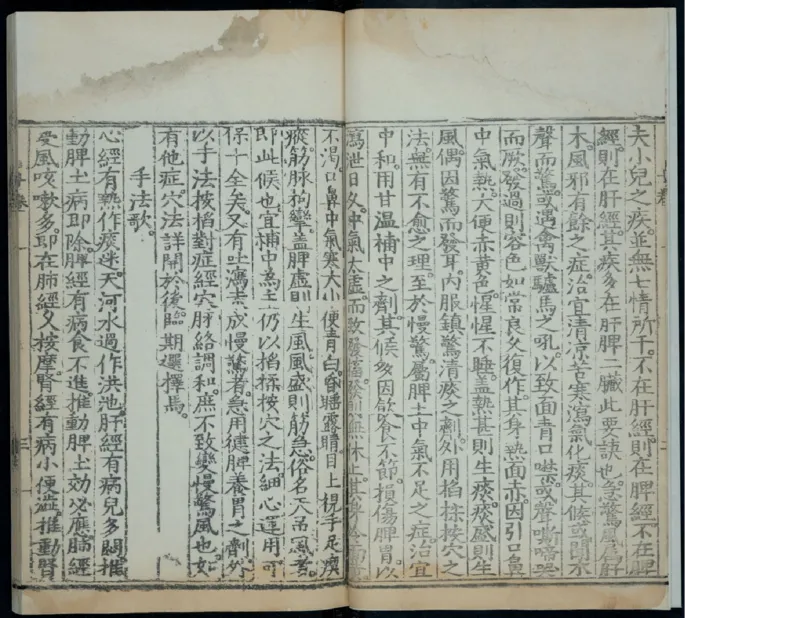 夫小兒之疾。並無七情所干。不在肝經。則在脾經。不在脾
經。則在肝經。其疾多在肝脾二臟此要訣也。急驚風屬肝
木風邪有餘之症。治宜清凉苦寒瀉氣化痰。其候或聞水
聲而驚。或遇禽獸驢馬之吼。以致面青口噤。或聲嘶啼哭
而厥。發過則容色如常。良久復作。其身熱面赤。因引口鼻
中氣熱。大便赤黄色。惺惺不睡。蓋熱甚則生痰。痰盛則生
風。偶因驚而發耳。内服鎮驚清痰之劑。外用掐揉按穴之
法。無有不愈之理。至於慢驚。屬脾土中氣不足之症。治宜
中和。用甘温補中之劑。其候多因飲食不節。損傷脾胃。以
瀉泄日久。中氣太虚。而致發搐。發則無休止。其身冷面黄
不渴。口鼻中氣寒。大小便青白。昏睡露睛。目上視。手足瘈
瘲。筋脉拘攣。盖脾虚則生風。風盛則筋急。俗名天吊風者。
即此候也。宜補中為主。仍以掐揉按穴之法。細心運用。可
保十全矣。又有吐瀉未成慢驚者。急用健脾養胃之劑。外
以手法按掐對症經穴。脉絡調和。庶不致變慢驚風也。如
有他症。穴法詳開於後。臨期選擇焉。
手法歌。
心經有熱作痰迷。天河水過作洪池。肝經有病兒多悶。推
動脾土病即除。脾經有病食不進。推動脾土効必應。肺經
受風咳嗽多。即在肺經久按摩。腎經有病小便澁。推動腎